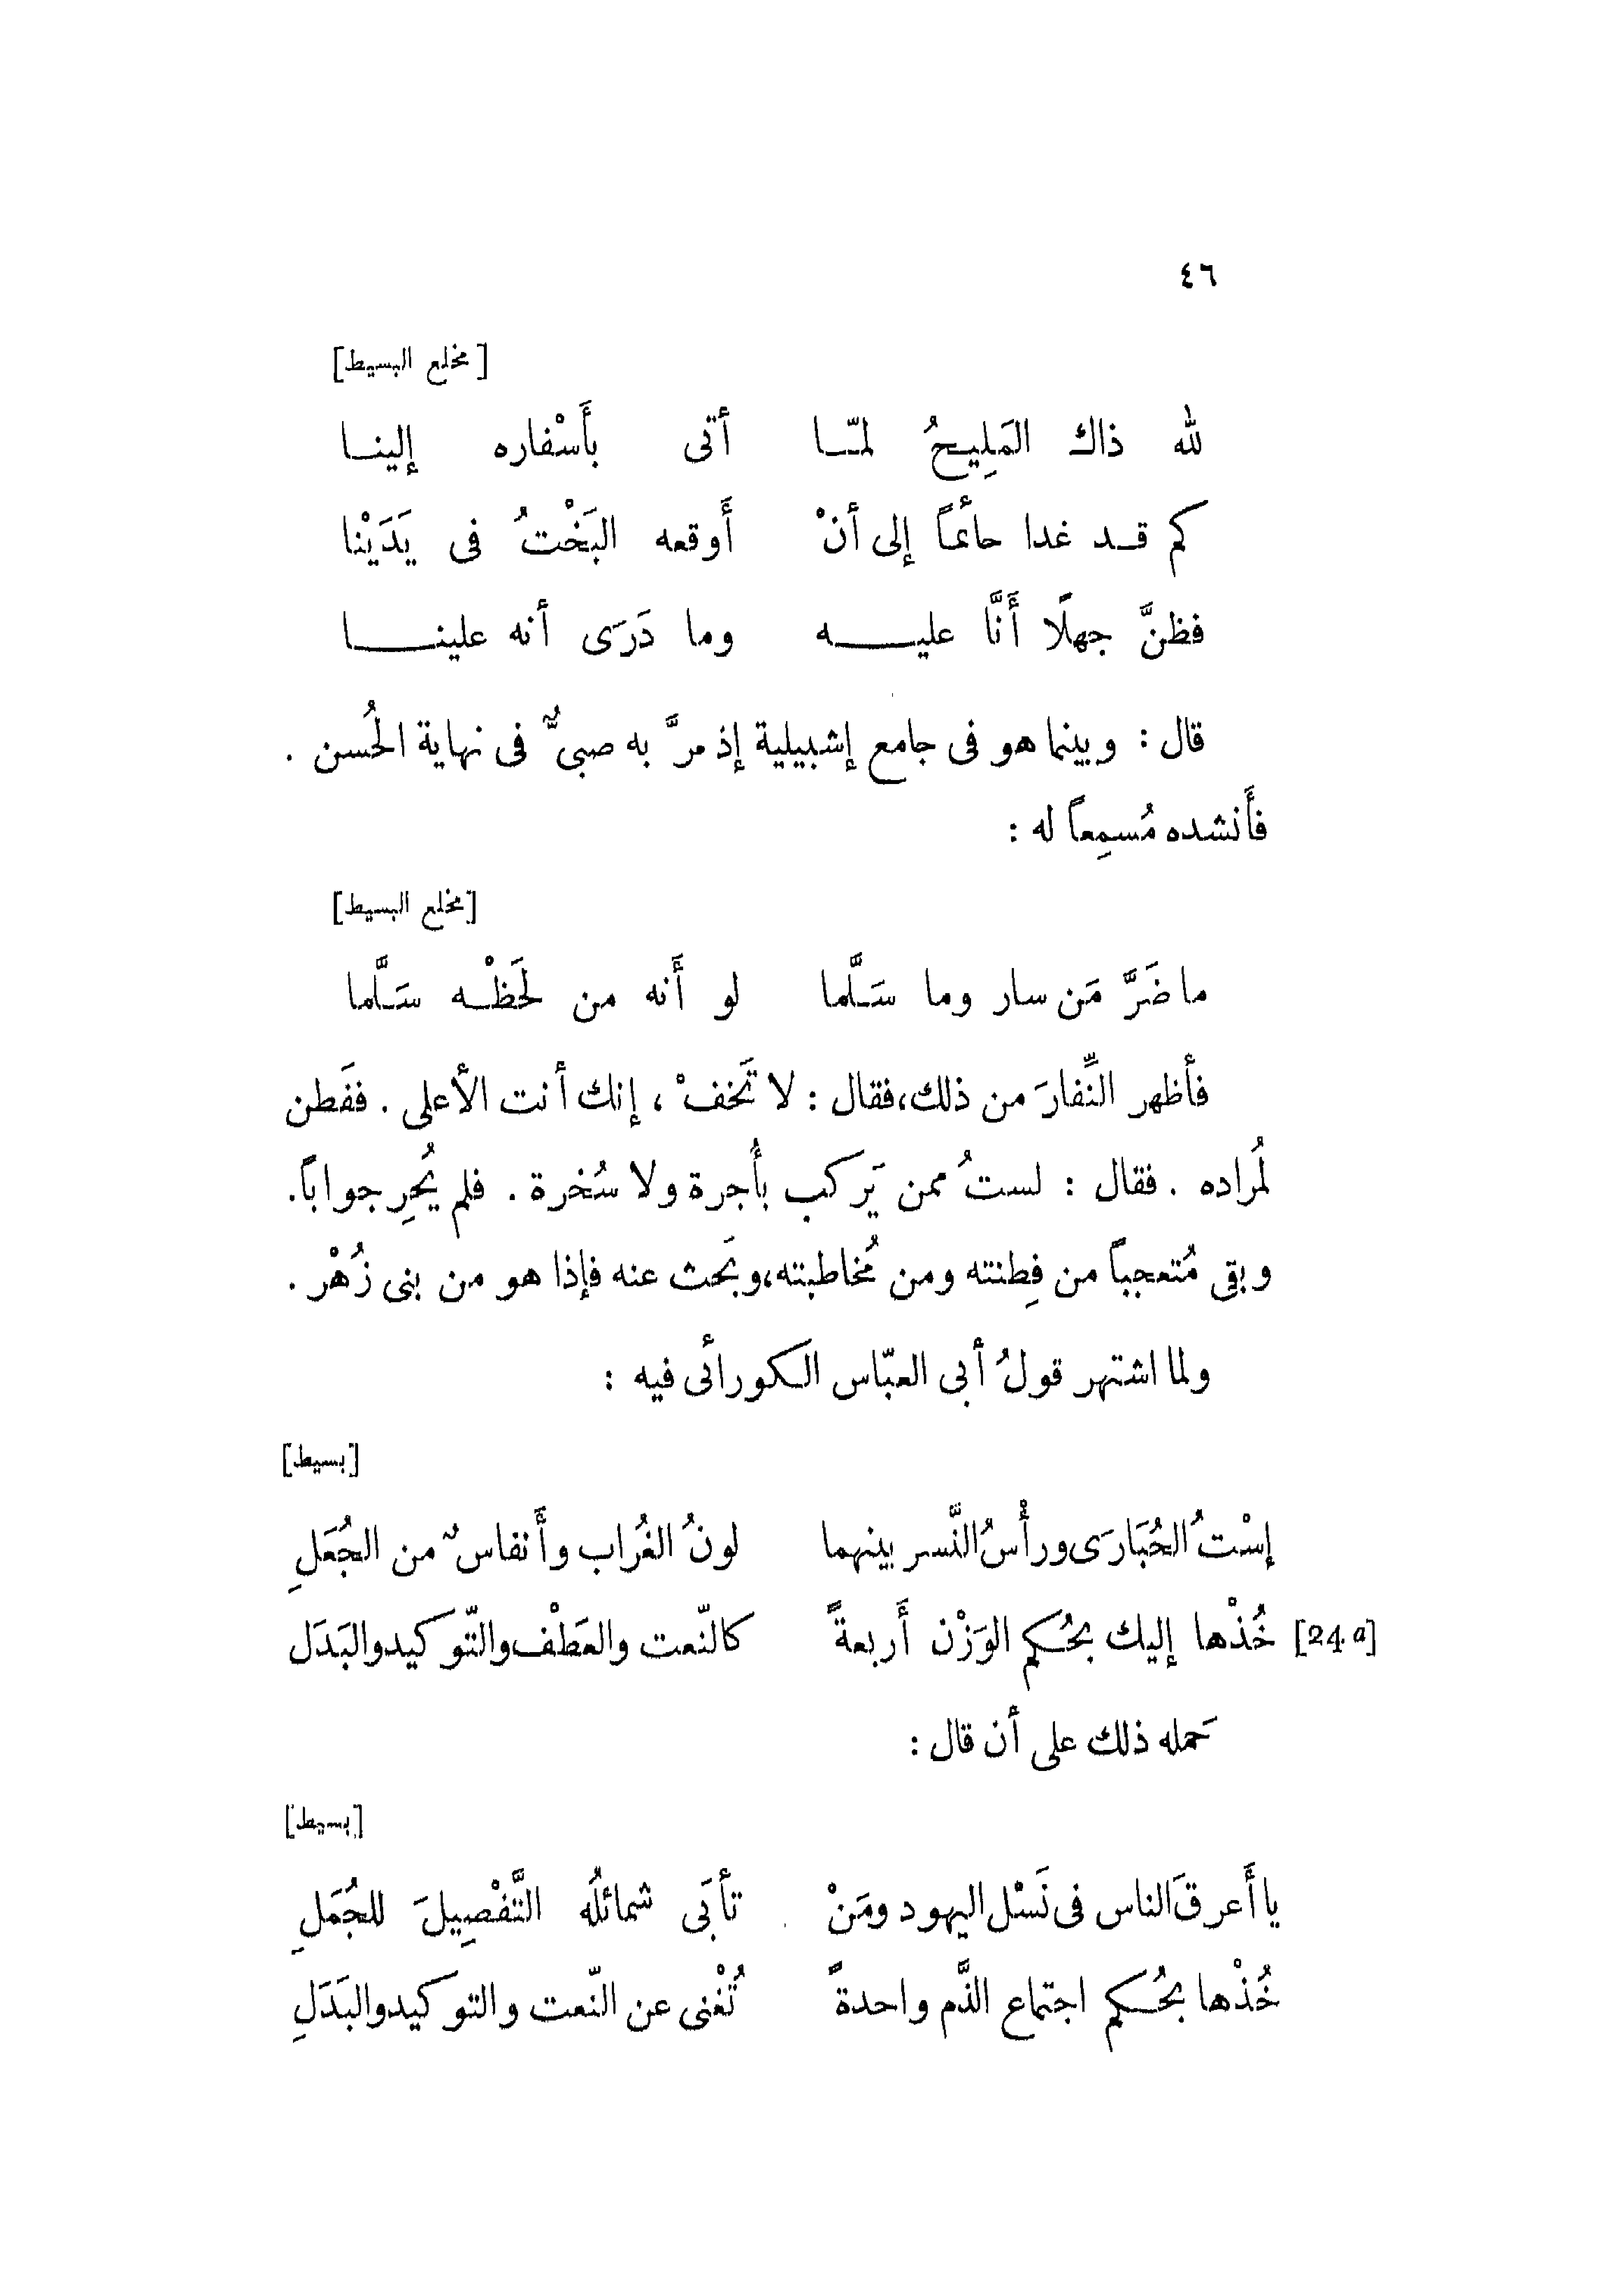 ٤٦
[مخلع البسيط]
لله ذاك المَلِيحُ لمّا أتى بأَسْفاره إلينا
كم قد غدا حائماً إلى أنْ أَوقعه البَخْتُ فى يَدَيْنا
فظنَّ جهلًا أَنَّا عليه وما دَرَى أنه علينا
قال : وبينما هو فى جامع إشبيلية إذ مرَّ به صبىٌّ فى نهاية الحُسن .
فأَنشده مُسمِعاً له :
[مخلع البسيط]
ما ضَرَّ مَن سار وما سَلَّما لو أَنه من لَحَظْه سَلَّما
فأظهر النِّفارَ من ذلك، فقال : لا تَخفْ ، إنك أنت الأعلى . ففَطن
لمُراده . فقال : لستُ ممن يَركب بأُجرة ولا سُخرة . فلم يُحِر جواباً.
وبقى مُتعجباً من فِطنته ومن مُخاطبته، وبَحث عنه فإذا هو من بنى زُهْر .
ولما اشتهر قولُ أبى العبّاس الكورائى فيه :
[بسيط]
إسْتُ الحُبَارَى ورأْسُ النَّسر بينهما لونُ الغُراب وأَنفاسٌ من الجُعَلِ
[24 a] خُذْها إليك بحُكم الوَزْن أَربعةً كالنّعت والعَطْف والتّوكيد والبَدَل
حَمله ذلك على أن قال :
[بسيط]
يا أَعرقَ الناس فى نَسْل اليهود ومَنْ تأبَى شمائلُه التَّفْصِيلَ للجُمَلِ
خُذْها بحُكم اجتماع الذَّم واحدةً تُغْنى عن النّعت والتوكيد والبَدَلِ